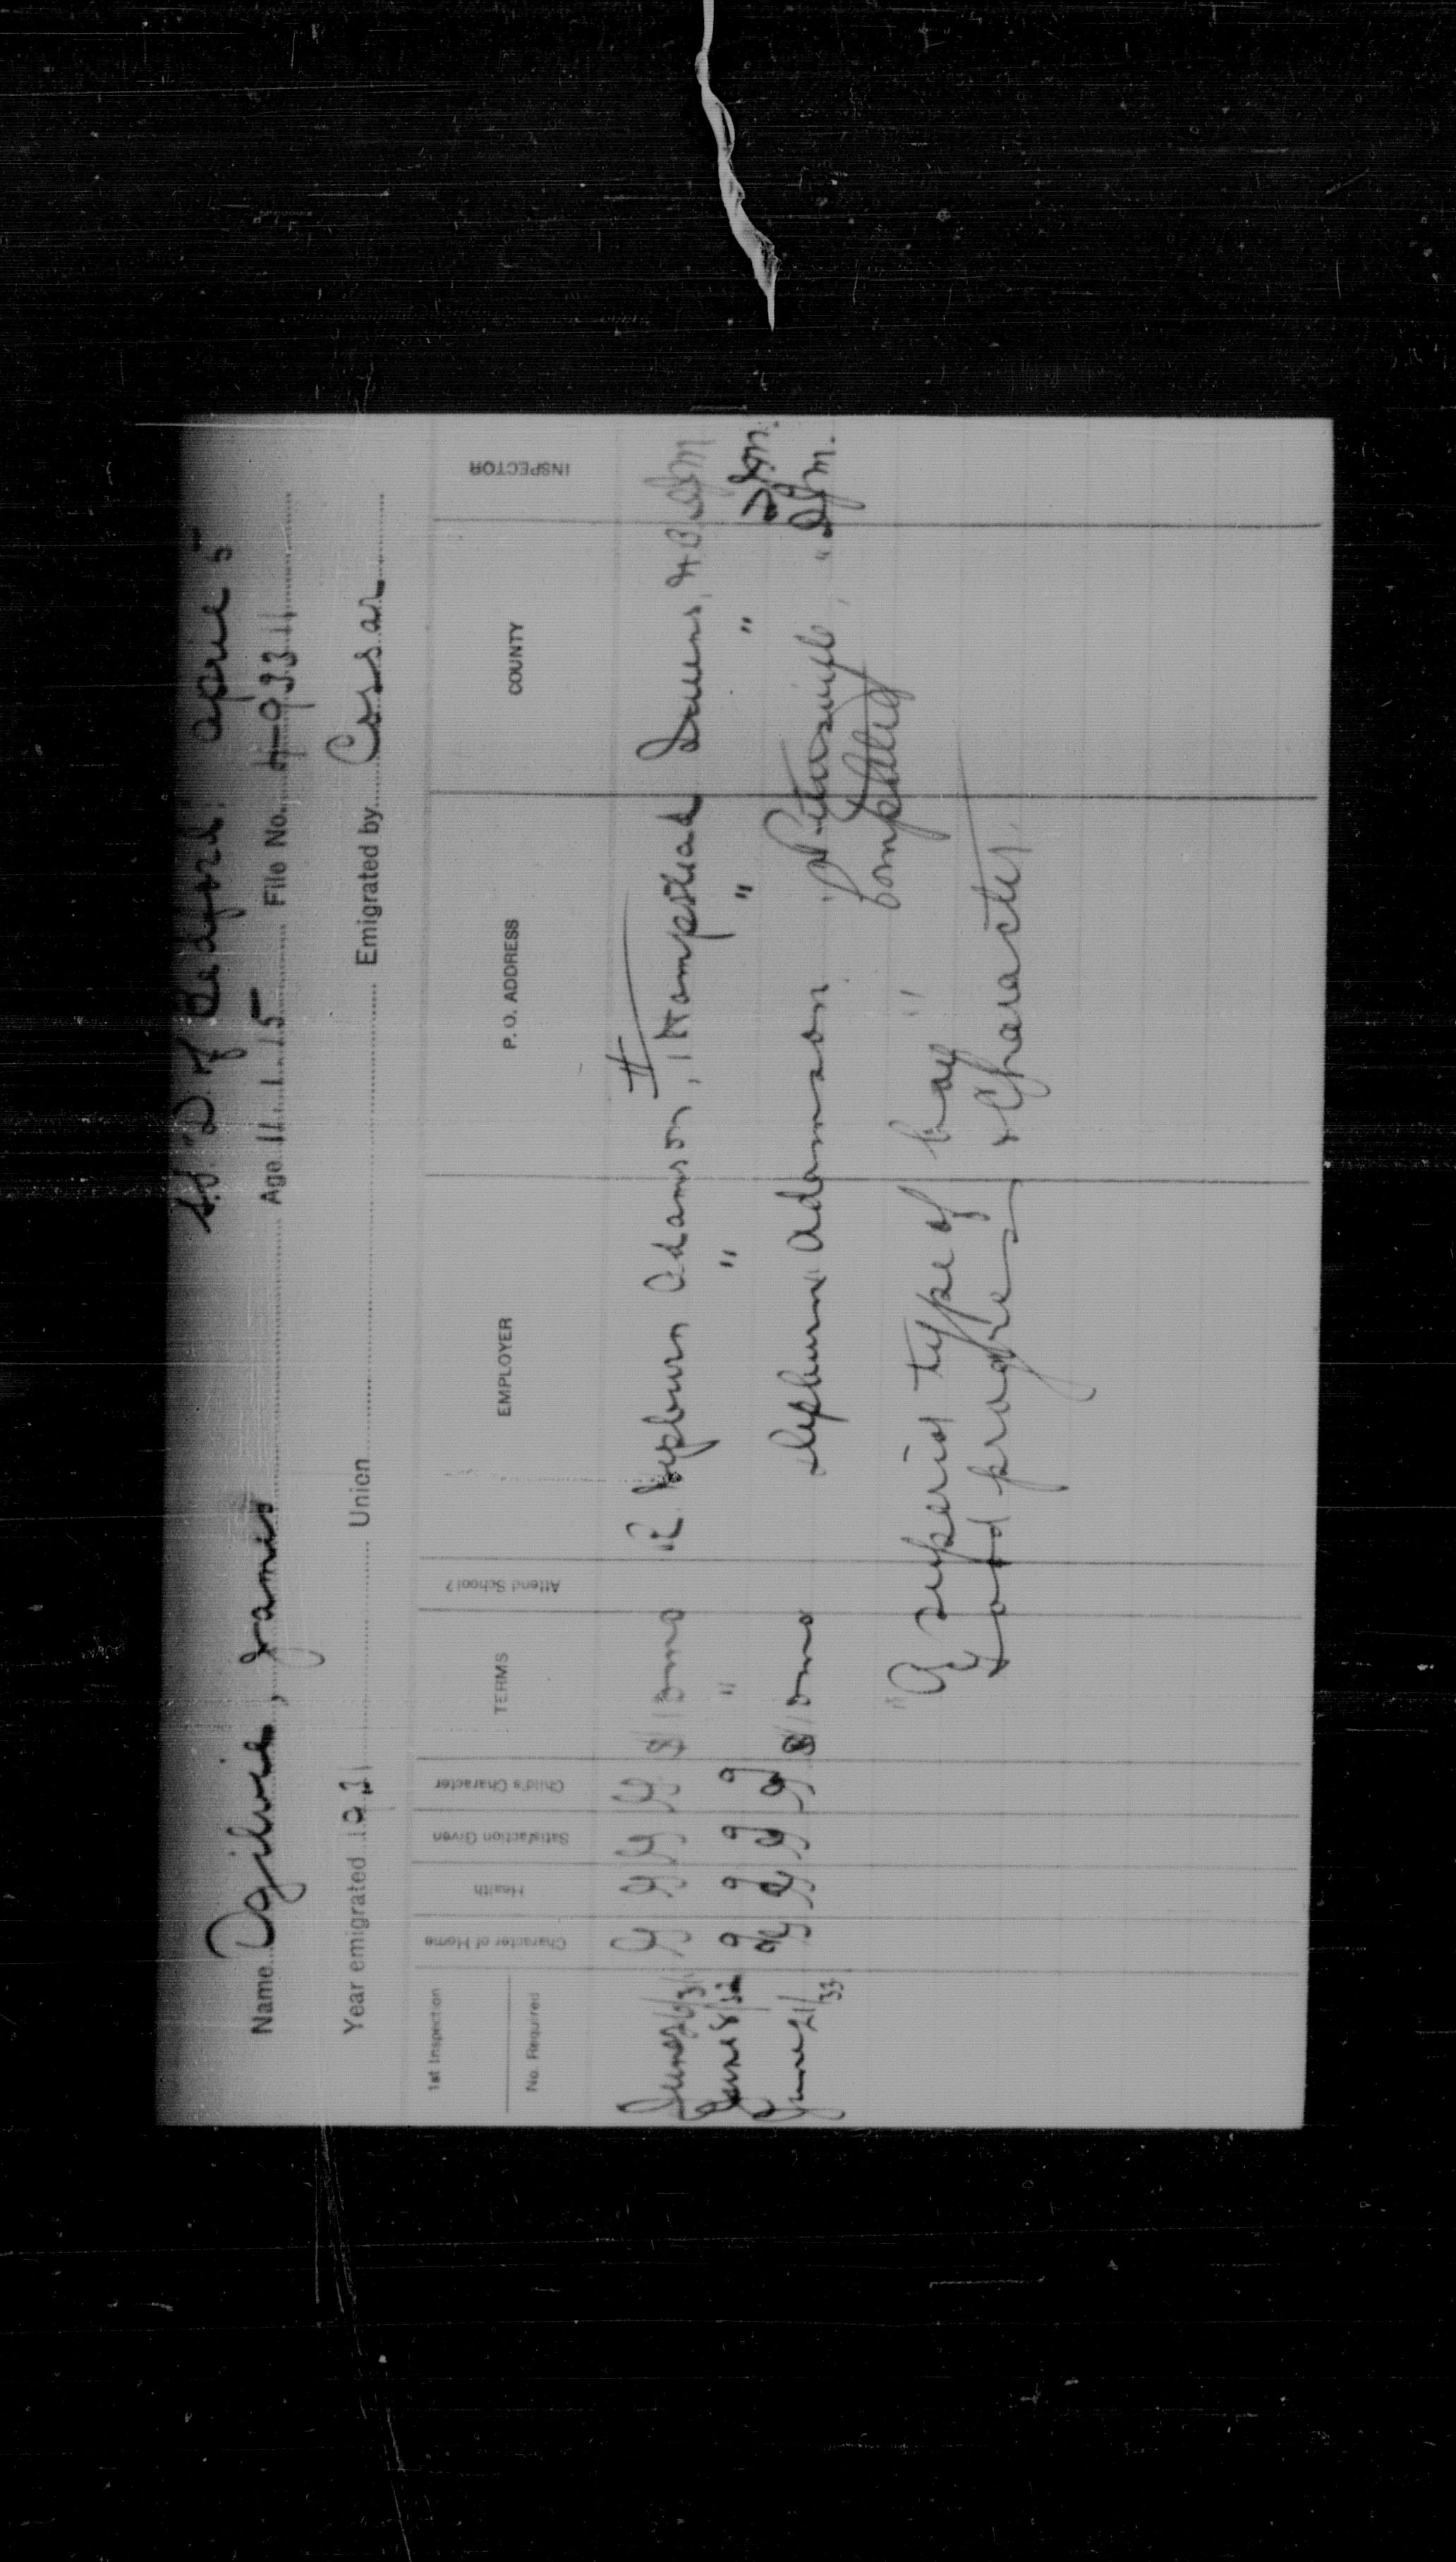 S.S. D of Bedford April 5
Name Ogilvie, James Age 11.1.15 File No. 4-9331
Year emigrated 1931 Union Emigrated by Cossar
1st Inspection
No. Required
Character of Home
Health
Satisfaction Given
Child's Character
TERMS
Attend School?
EMPLOYER
P. O. ADDRESS
COUNTY
INSPECTOR
II
June 26/31 G G G G $10 mo R Hepburn Adamson, Hampstead Queens, N.B.
June 8/32 g g g g " " " "
June 21/33 g g g g $10 mo Hepburn Adamson Petersville, "
Completed
"A superior type of boy"
Good progress & Character.